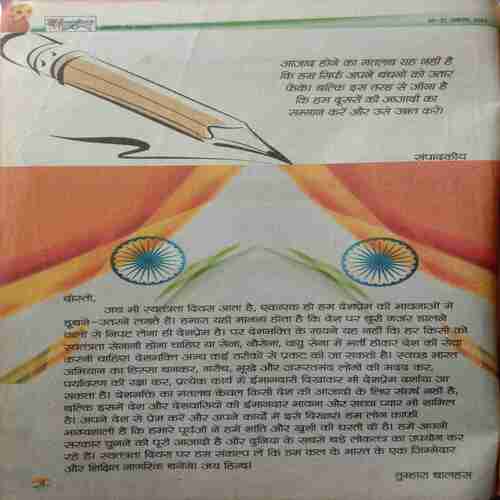 आजाद होने का मतलब यह नहीं है
कि हम सिर्फ अपने बंधनों को उतार
फेंकें। बल्कि इस तरह से जीना है
कि हम दूसरों की आजादी का
सम्मान करें और उसे उन्नत करें।
संपादकीय
दोस्तों,
जब भी स्वतंत्रता दिवस आता है, एकाएक ही हम देशप्रेम की भावनाओं में
डूबने-उतरने लगते हैं। हमारा यही मानना होता है कि देश पर बुरी नजर डालने
वालों से निपट लेना ही देशप्रेम है। पर देशभक्ति के मायने यह नहीं कि हर किसी को
स्वतंत्रता सेनानी होना चाहिए या सेना, नौसेना, वायु सेना में भर्ती होकर देश की सेवा
करनी चाहिए। देशभक्ति अन्य कई तरीकों से प्रकट की जा सकती है। स्वच्छ भारत
अभियान का हिस्सा बनकर, गरीब, भूखे और जरूरतमंद लोगों की मदद कर,
पर्यावरण की रक्षा कर, प्रत्येक कार्य में ईमानदारी दिखाकर भी देशप्रेम दर्शाया जा
सकता है। देशभक्ति का मतलब केवल किसी देश की आजादी के लिए संघर्ष नहीं है,
बल्कि इसमें देश और देशवासियों की ईमानदार भावना और सच्चा प्यार भी शामिल
है। आपने देश से प्रेम करें और अपने कार्यों में इसे दिखाएं। हम लोग काफी
भाग्यशाली हैं कि हमारे पूर्वजों ने हमें शांति और खुशी की धरती दी है। हमें अपनी
सरकार चुनने की पूरी आजादी है और दुनिया के सबसे बड़े लोकतंत्र का उपयोग कर
रहे हैं। स्वतंत्रता दिवस पर हम संकल्प लें कि हम कल के भारत के एक जिम्मेदार
और शिक्षित नागरिक बनेंगे। जय हिन्द!
तुम्हारा बालहंस